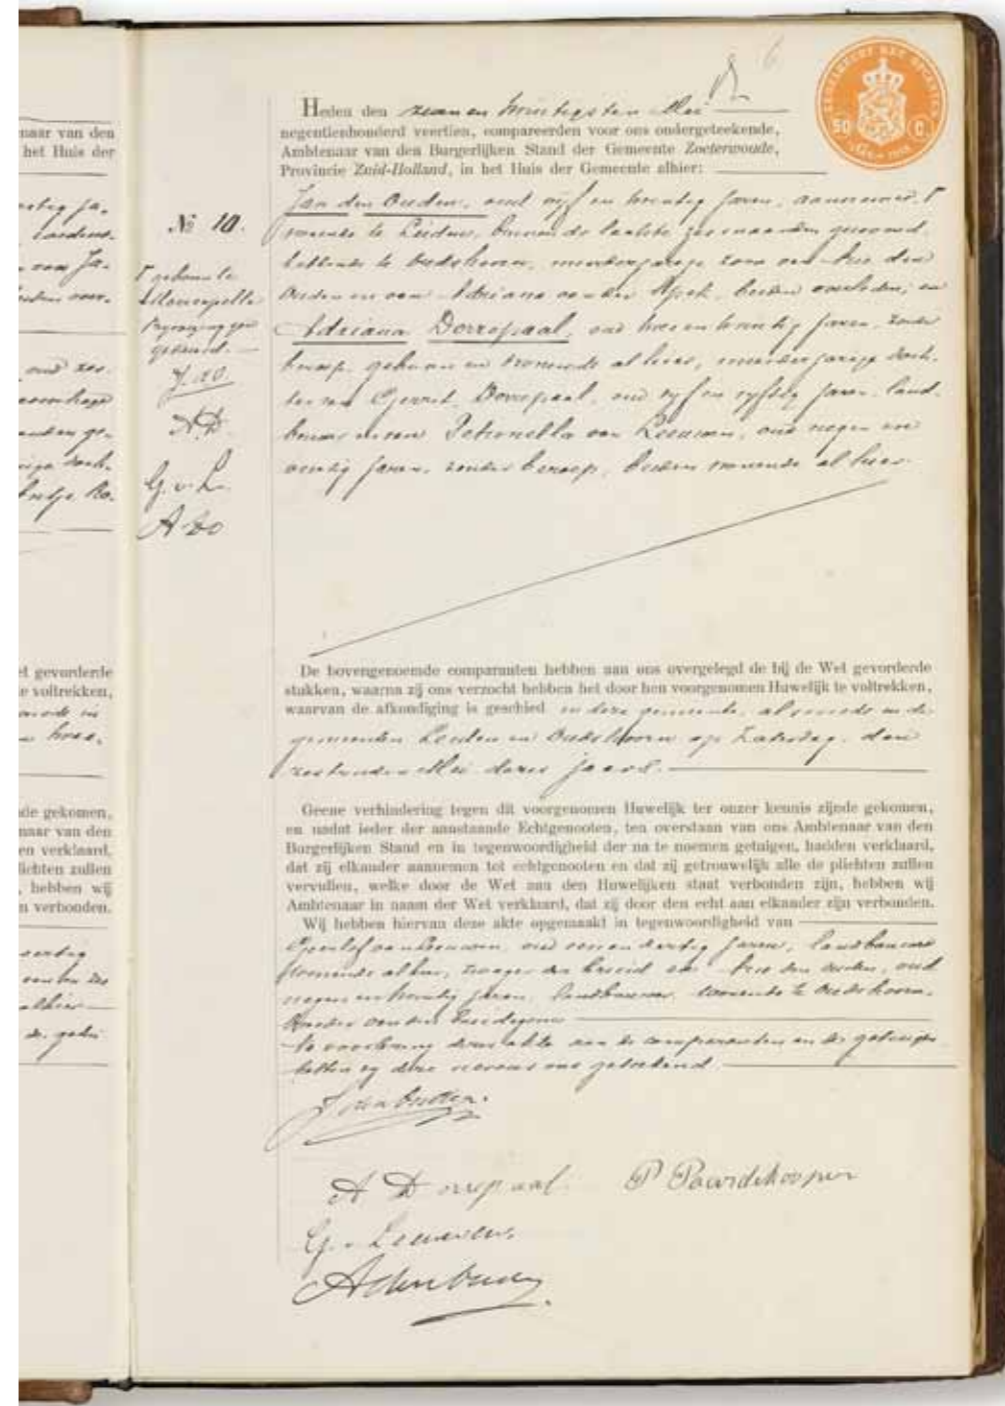 naar van den
het Huis der
No 10.
geboren te
Moercapelle
J. d O.
A D.
G. v. L.
A d O
50 C.
Heden den zeven en twintigsten Mei
negentienhonderd veertien, compareerden voor ons ondergeteekende,
Ambtenaar van den Burgerlijken Stand der Gemeente Zoeterwoude,
Provincie Zuid-Holland, in het Huis der Gemeente alhier:
Jan den Ouden, oud vijf en twintig jaren, aannemer,
wonende te Leiden, binnen de laatste zes maanden gewoond
hebbende te Oudshoorn, meerderjarige zoon van Arie den
Ouden en van Adriana van der Spek, beiden overleden, en
Adriana Dorrepaal, oud twee en twintig jaren, zonder
beroep, geboren en wonende alhier, meerderjarige doch-
ter van Gerrit Dorrepaal, oud vijf en vijftig jaren, land-
bouwer en van Petronella van Leeuwen, oud negen en
veertig jaren, zonder beroep, beiden wonende alhier.
De bovengenoemde comparanten hebben aan ons overgelegd de bij de Wet gevorderde
stukken, waarna zij ons verzocht hebben het door hen voorgenomen Huwelijk te voltrekken,
waarvan de afkondiging is geschied in deze gemeente, alsmede in de
gemeenten Leiden en Oudshoorn op Zaterdag, den
zestienden Mei dezes jaars.
Geene verhindering tegen dit voorgenomen Huwelijk ter onzer kennis zijnde gekomen,
en nadat ieder der aanstaande Echtgenooten, ten overstaan van ons Ambtenaar van den
Burgerlijken Stand en in tegenwoordigheid der na te noemen getuigen, hadden verklaard,
dat zij elkander aannemen tot echtgenooten en dat zij getrouwelijk alle de plichten zullen
vervullen, welke door de Wet aan den Huwelijken staat verbonden zijn, hebben wij
Ambtenaar in naam der Wet verklaard, dat zij door den echt aan elkander zijn verbonden.
Wij hebben hiervan deze akte opgemaakt in tegenwoordigheid van
van Leeuwen, oud en dertig jaren, landbouwer
wonende alhier, zwager der bruid en Arie den Ouden, oud
negen en twintig jaren, landbouwer, wonende te Oudshoorn,
broeder van den bruidegom
Na voorlezing dezer akte aan de comparanten en de getuigen
hebben zij deze nevens ons geteekend.
J den Ouden.
A Dorrepaal. P Paardekooper
G. v. Leeuwen.
A den Ouden
et gevorderde
te voltrekken,
de gekomen,
naar van den
en verklaard,
lichten zullen
, hebben wij
n verbonden.